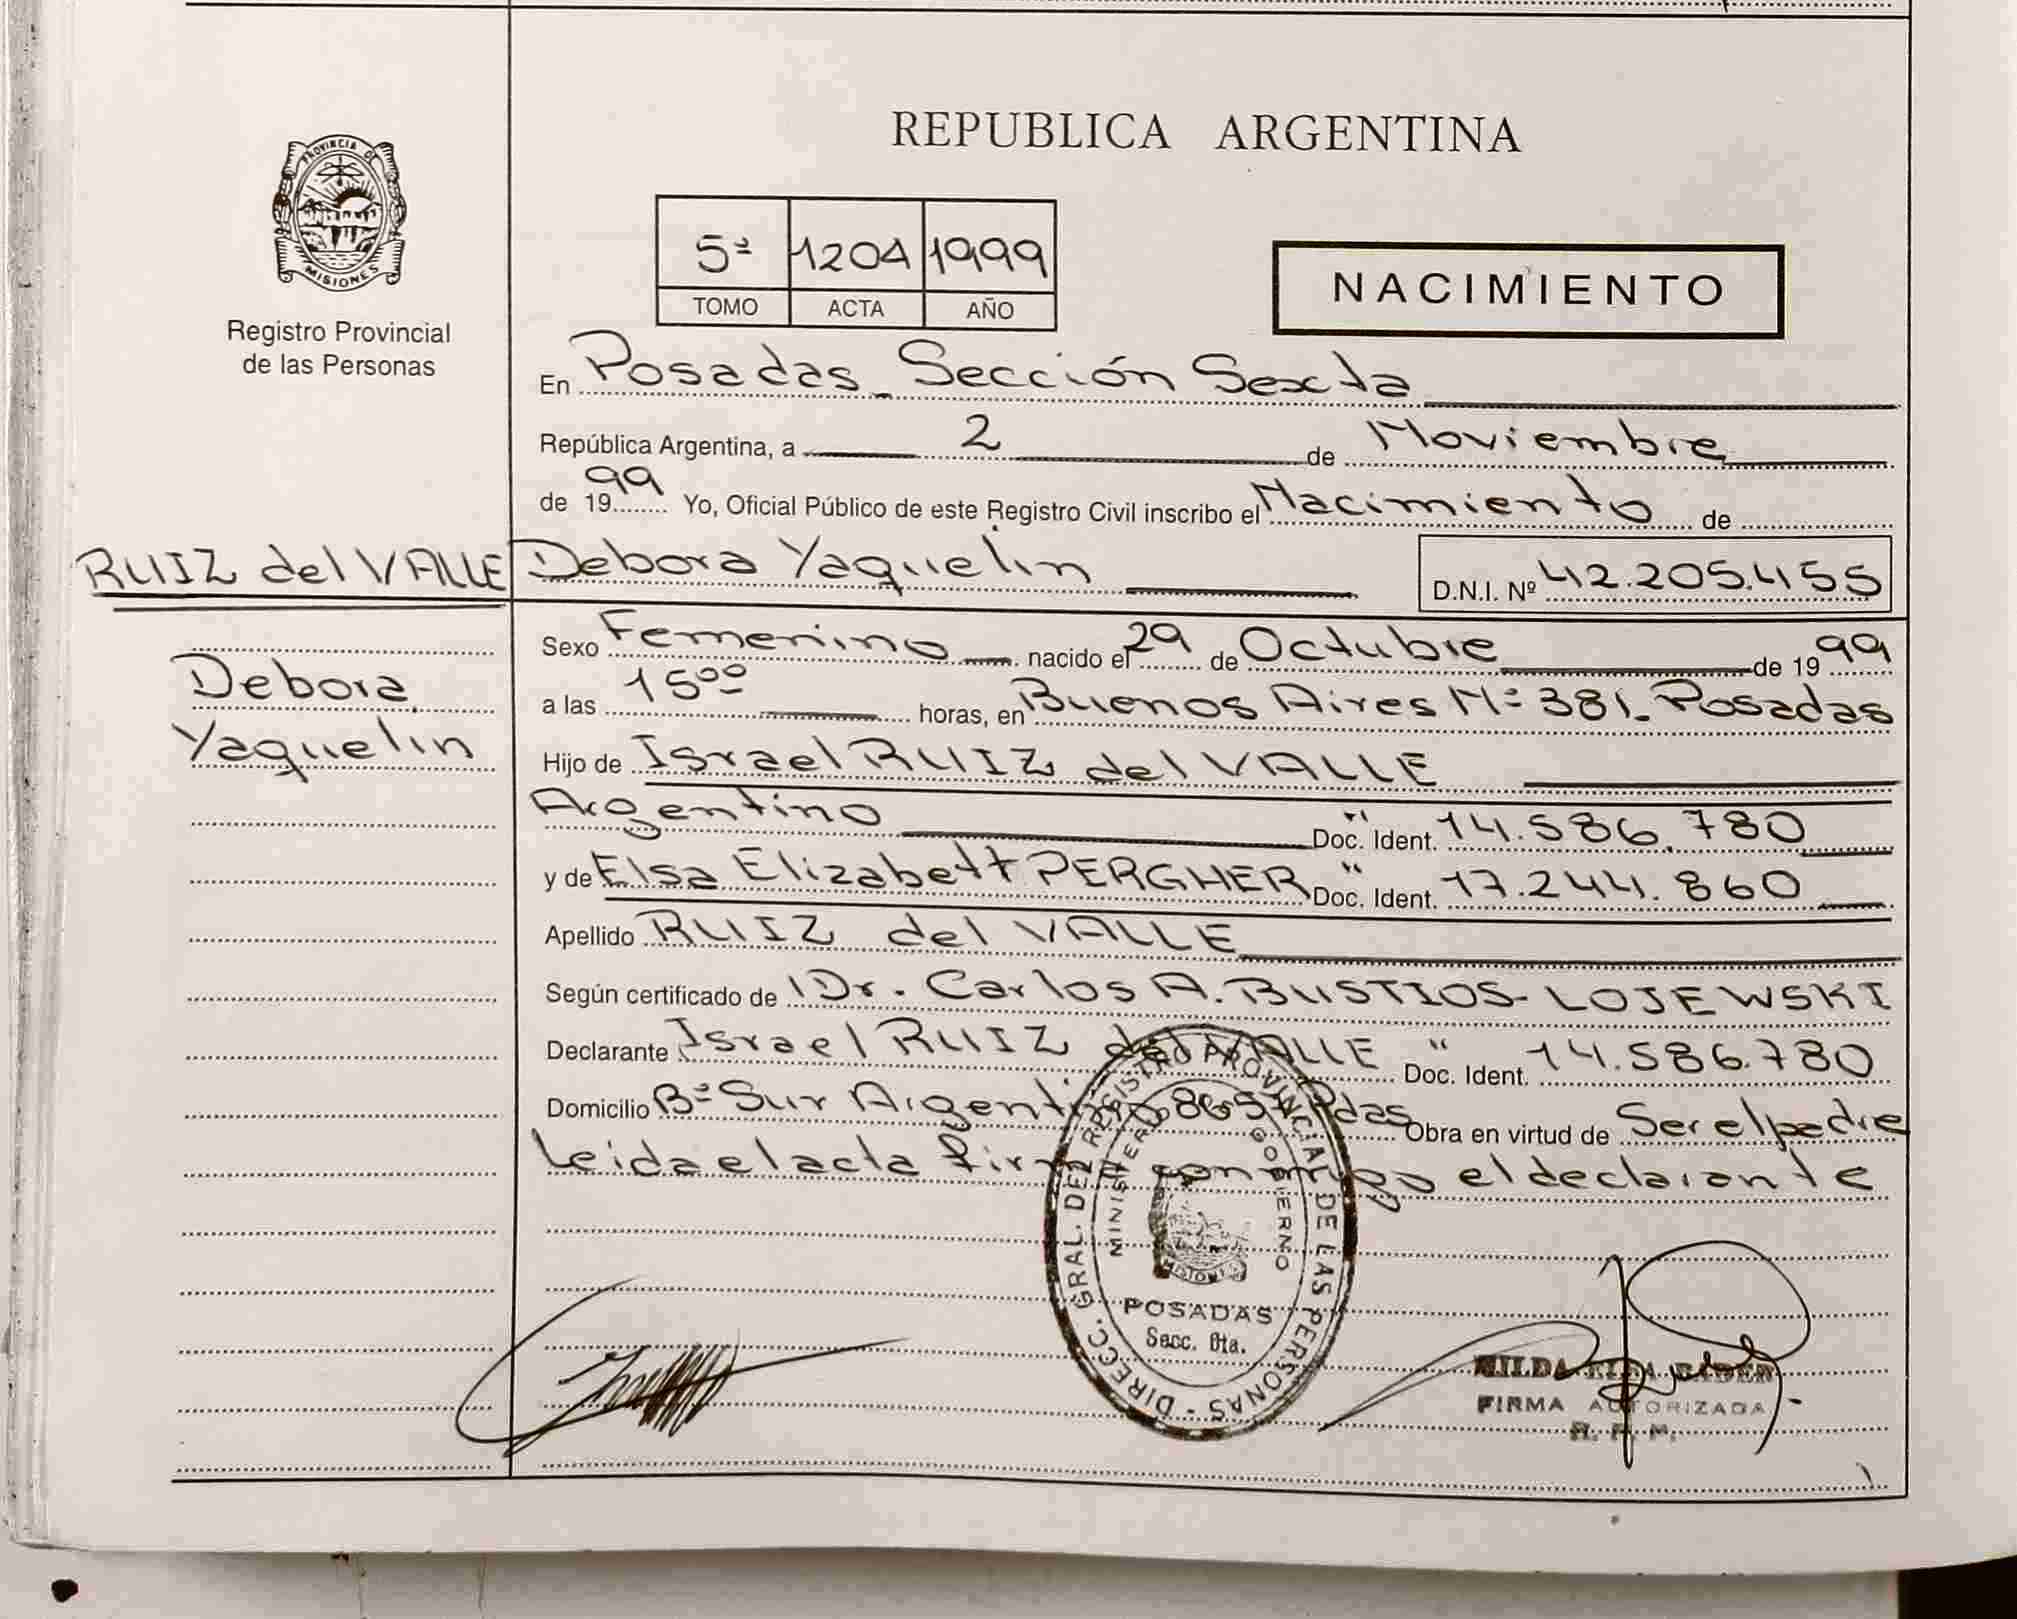 REPUBLICA ARGENTINA
PROVINCIA DE
MISIONES
Registro Provincial
de las Personas
5ª 1204 1999
TOMO ACTA AÑO
NACIMIENTO
En Posadas - Sección Sexta
República Argentina, a 2 de Noviembre
de 1999 Yo, Oficial Público de este Registro Civil inscribo el Nacimiento de
RUIZ del VALLE Debora Yaquelin D.N.I. Nº 42.205.455
Debora
Yaquelin
Sexo Femenino nacido el 29 de Octubre de 1999
a las 15⁰⁰ horas, en Buenos Aires Nº 381 - Posadas
Hijo de Israel RUIZ del VALLE
Argentino Doc. Ident. 14.586.780
y de Elsa Elizabett PERGHER Doc. Ident. 17.244.860
Apellido RUIZ del VALLE
Según certificado de Dr. Carlos A. BUSTIOS - LOJEWSKI
Declarante Israel RUIZ del VALLE Doc. Ident. 14.586.780
Domicilio Bº Sur Argentino Pdas Obra en virtud de Ser el padre
Leida el acta firma conmigo el declarante
DIRECC. GRAL. DEL REGISTRO PROVINCIAL DE LAS PERSONAS
MINISTERIO GOBIERNO
MISIONES
POSADAS
Secc. 6ta.
HILDA BADER
FIRMA AUTORIZADA